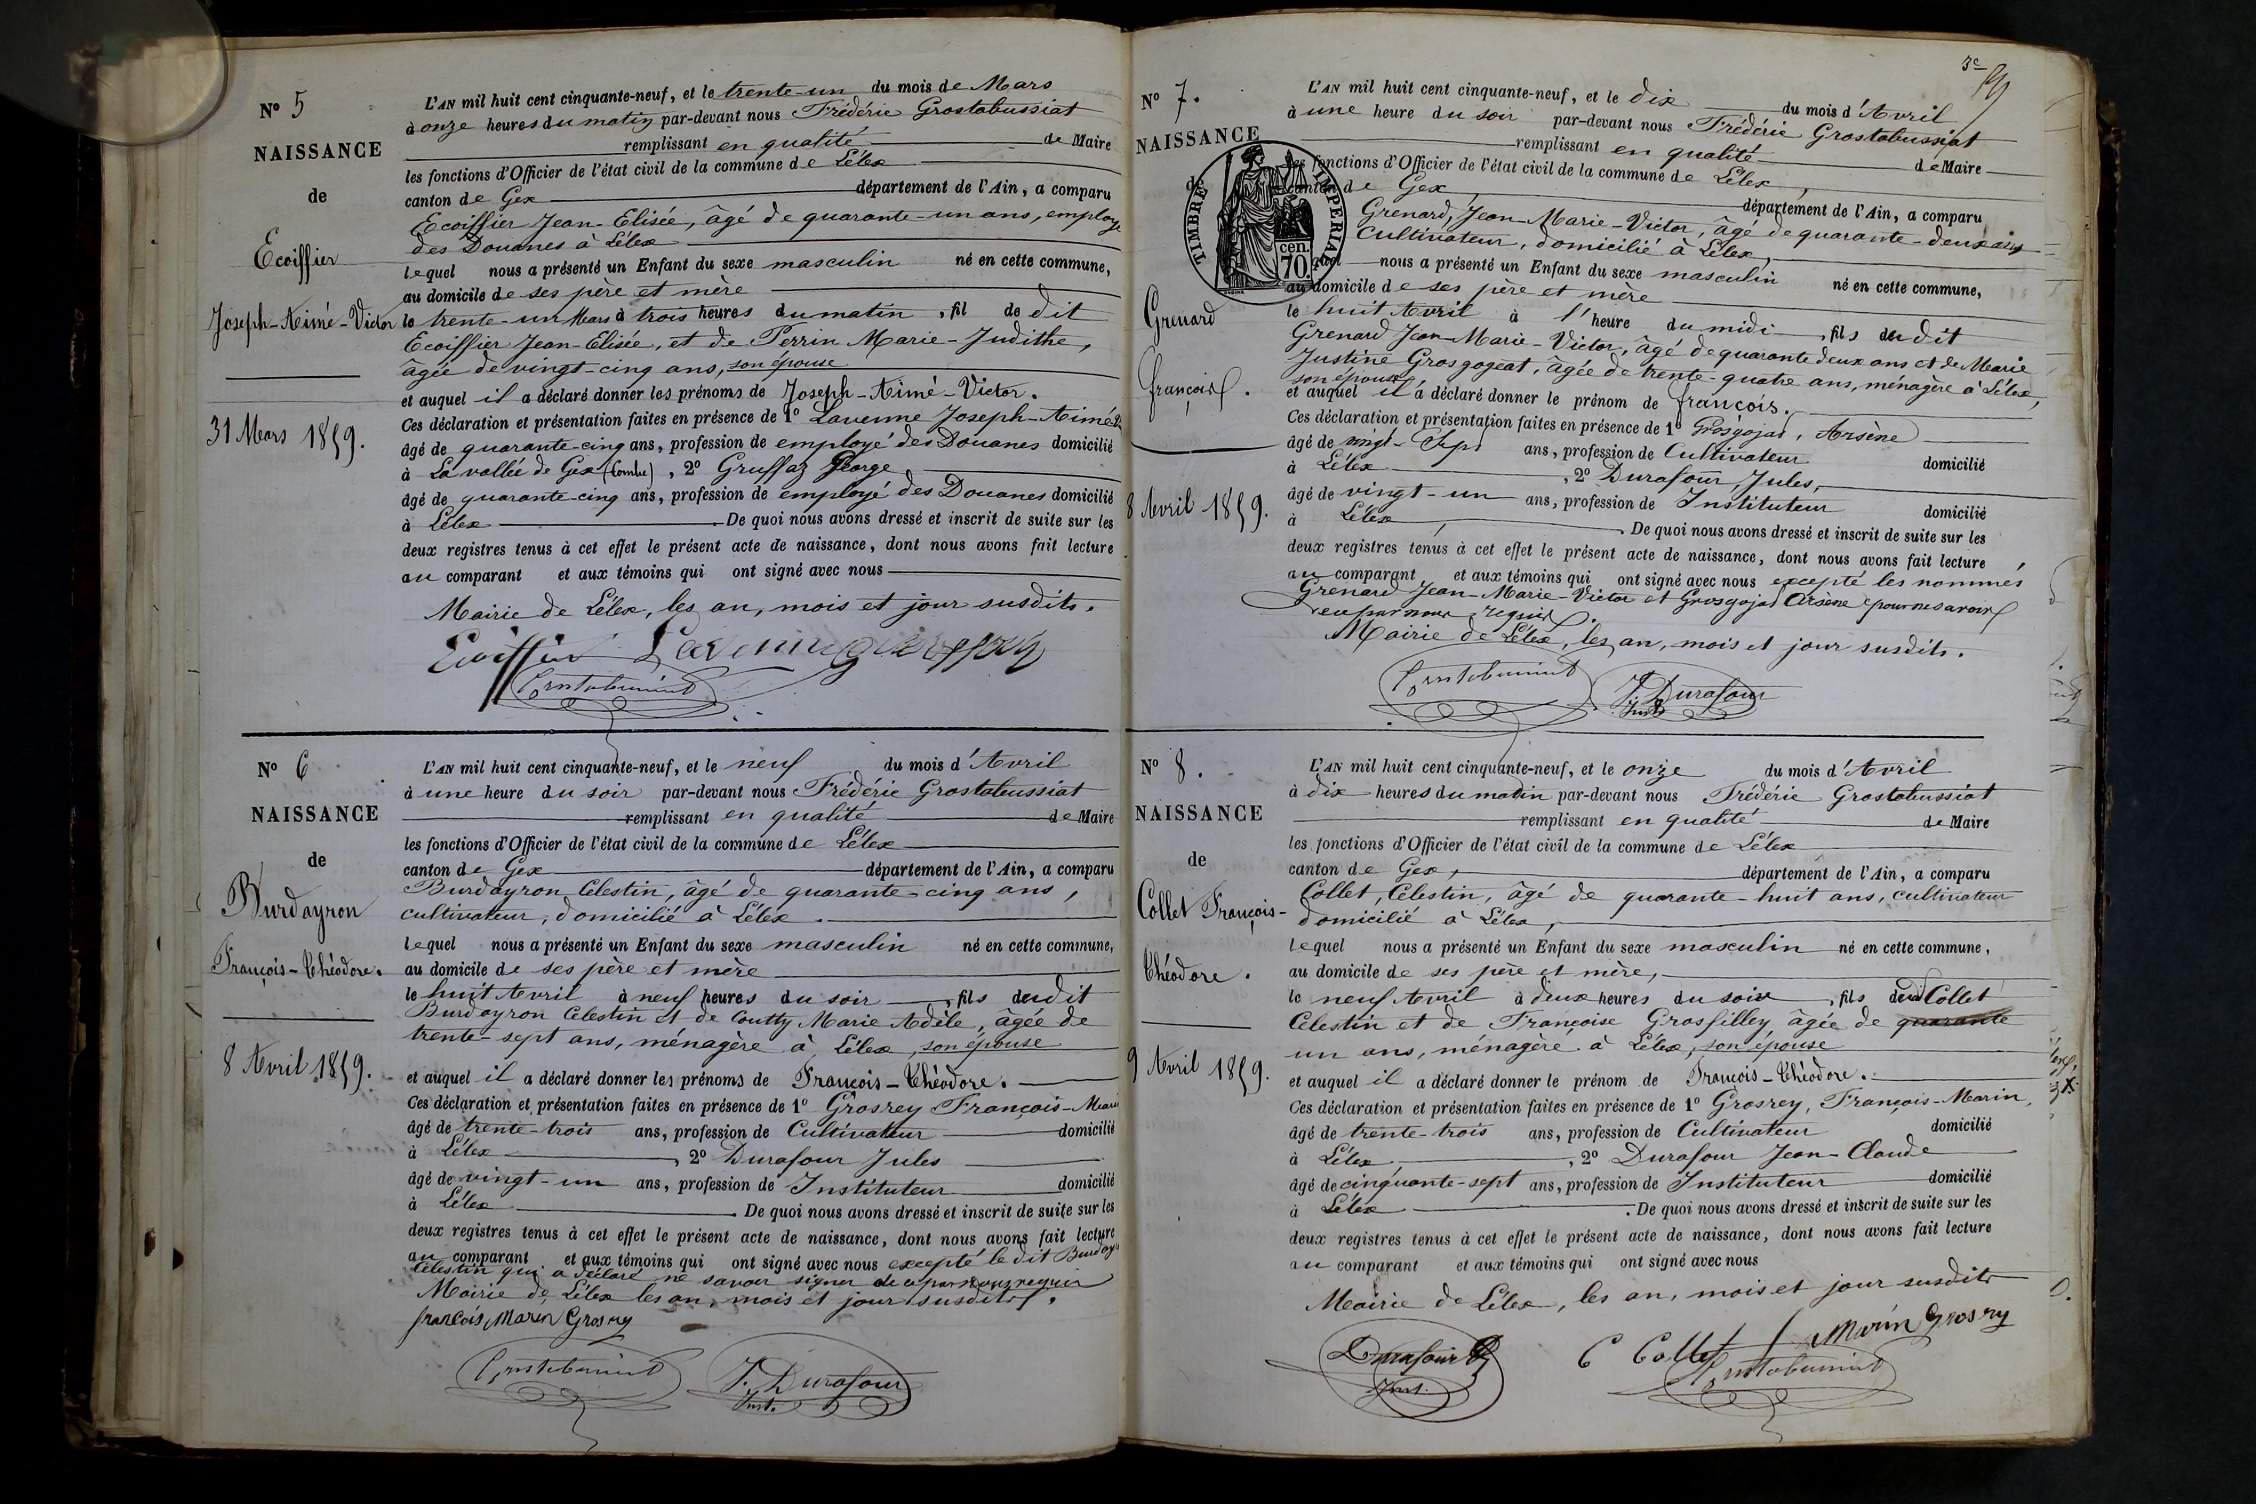 N° 5
NAISSANCE
de
Ecoiffier
Joseph-Aimé-Victor
31 Mars 1859.
L'AN mil huit cent cinquante-neuf, et le trente-un du mois de Mars
à onze heures du matin par-devant nous Frédéric Grostabussiat
remplissant en qualité de Maire
les fonctions d'Officier de l'état civil de la commune de Lélex
canton de Gex département de l'Ain, a comparu
Ecoiffier Jean-Elisée, âgé de quarante-un ans, employé
des Douanes à Lélex
lequel nous a présenté un Enfant du sexe masculin né en cette commune,
au domicile de ses père et mère
le trente-un Mars à trois heures du matin, fil de dit
Ecoiffier Jean-Elisée, et de Perrin Marie-Judithe,
âgée de vingt-cinq ans, son épouse
et auquel il a déclaré donner les prénoms de Joseph-Aimé-Victor.
Ces déclaration et présentation faites en présence de 1° Lavenne Joseph-Aimé
âgé de quarante-cinq ans, profession de employé des Douanes domicilié
à La vallée de Gex (Combe), 2° Gruffaz George
âgé de quarante-cinq ans, profession de employé des Douanes domicilié
à Lélex De quoi nous avons dressé et inscrit de suite sur les
deux registres tenus à cet effet le présent acte de naissance, dont nous avons fait lecture
au comparant et aux témoins qui ont signé avec nous
Mairie de Lélex, les an, mois et jour susdits.
Ecoiffier
Grostabussiat
N° 6
NAISSANCE
de
Burdayron
François-Théodore.
8 Avril 1859.
L'AN mil huit cent cinquante-neuf, et le neuf du mois d'Avril
à une heure du soir par-devant nous Frédéric Grostabussiat
remplissant en qualité de Maire
les fonctions d'Officier de l'état civil de la commune de Lélex
canton de Gex département de l'Ain, a comparu
Burdayron Célestin, âgé de quarante-cinq ans,
cultivateur, domicilié à Lélex.
lequel nous a présenté un Enfant du sexe masculin né en cette commune,
au domicile de ses père et mère
le huit Avril à neuf heures du soir, fils dudit
Burdayron Celestin et de Coutty Marie Adèle, âgée de
trente-sept ans, ménagère à Lélex, son épouse
et auquel il a déclaré donner les prénoms de François-Théodore.
Ces déclaration et présentation faites en présence de 1° Grosrey François-Marin
âgé de trente-trois ans, profession de Cultivateur domicilié
à Lélex, 2° Durafour Jules
âgé de vingt-un ans, profession de Instituteur domicilié
à Lélex. De quoi nous avons dressé et inscrit de suite sur les
deux registres tenus à cet effet le présent acte de naissance, dont nous avons fait lecture
au comparant et aux témoins qui ont signé avec nous excepté le dit Burdayron
Célestin qui a déclaré ne savoir signer de ce par nous requis
Mairie de Lélex les an, mois et jour susdits.
françois Marin Grosrey
Grostabussiat J. Durafour
Inst.
3e
N° 7.
NAISSANCE
de
TIMBRE IMPERIAL
cen.
70.
Grenard
françois.
8 Avril 1859.
L'AN mil huit cent cinquante-neuf, et le dix du mois d'Avril
à une heure du soir par-devant nous Frédéric Grostabussiat
remplissant en qualité de Maire
les fonctions d'Officier de l'état civil de la commune de Lélex,
canton de Gex, département de l'Ain, a comparu
Grenard, Jean-Marie-Victor, âgé de quarante-deux ans
Cultivateur, domicilié à Lélex,
nous a présenté un Enfant du sexe masculin né en cette commune,
au domicile de ses père et mère
le huit Avril à l'heure du midi, fils dudit
Grenard Jean-Marie-Victor, âgé de quarante deux ans et de Marie
Justine Grosgogeat, âgée de trente-quatre ans, ménagère à Lélex,
son épouse
et auquel il a déclaré donner le prénom de françois.
Ces déclaration et présentation faites en présence de 1° Grosgojat, Arsène
âgé de vingt-Sept ans, profession de Cultivateur domicilié
à Lélex, 2° Durafour, Jules,
âgé de vingt-un ans, profession de Instituteur domicilié
à Lélex. De quoi nous avons dressé et inscrit de suite sur les
deux registres tenus à cet effet le présent acte de naissance, dont nous avons fait lecture
au comparant et aux témoins qui ont signé avec nous excepté les nommés
Grenard Jean-Marie-Victor et Grosgojat Arsène pour ne savoir
requis.
Mairie de Lélex, les an, mois et jour susdits.
Grostabussiat J. Durafour
Inst
N° 8.
NAISSANCE
de
Collet François-
Théodore.
9 Avril 1859.
L'AN mil huit cent cinquante-neuf, et le onze du mois d'Avril
à dix heures du matin par-devant nous Frédéric Grostabussiat
remplissant en qualité de Maire
les fonctions d'Officier de l'état civil de la commune de Lélex
canton de Gex, département de l'Ain, a comparu
Collet, Célestin, âgé de quarante-huit ans, cultivateur
domicilié à Lélex,
lequel nous a présenté un Enfant du sexe masculin né en cette commune,
au domicile de ses père et mère,
le neuf Avril à deux heures du soir, fils dudit Collet
Celestin et de Françoise Grosfilley, âgée de quarante
un ans, ménagère à Lélex, son épouse
et auquel il a déclaré donner le prénom de François-Théodore.
Ces déclaration et présentation faites en présence de 1° Grosrey, François-Marin,
âgé de trente-trois ans, profession de Cultivateur domicilié
à Lélex, 2° Durafour Jean-Claude
âgé de cinquante-sept ans, profession de Instituteur domicilié
à Lélex. De quoi nous avons dressé et inscrit de suite sur les
deux registres tenus à cet effet le présent acte de naissance, dont nous avons fait lecture
au comparant et aux témoins qui ont signé avec nous
Mairie de Lélex, les an, mois et jour susdits
Durafour C Collet f Marin Grosrey
Inst. Grostabussiat